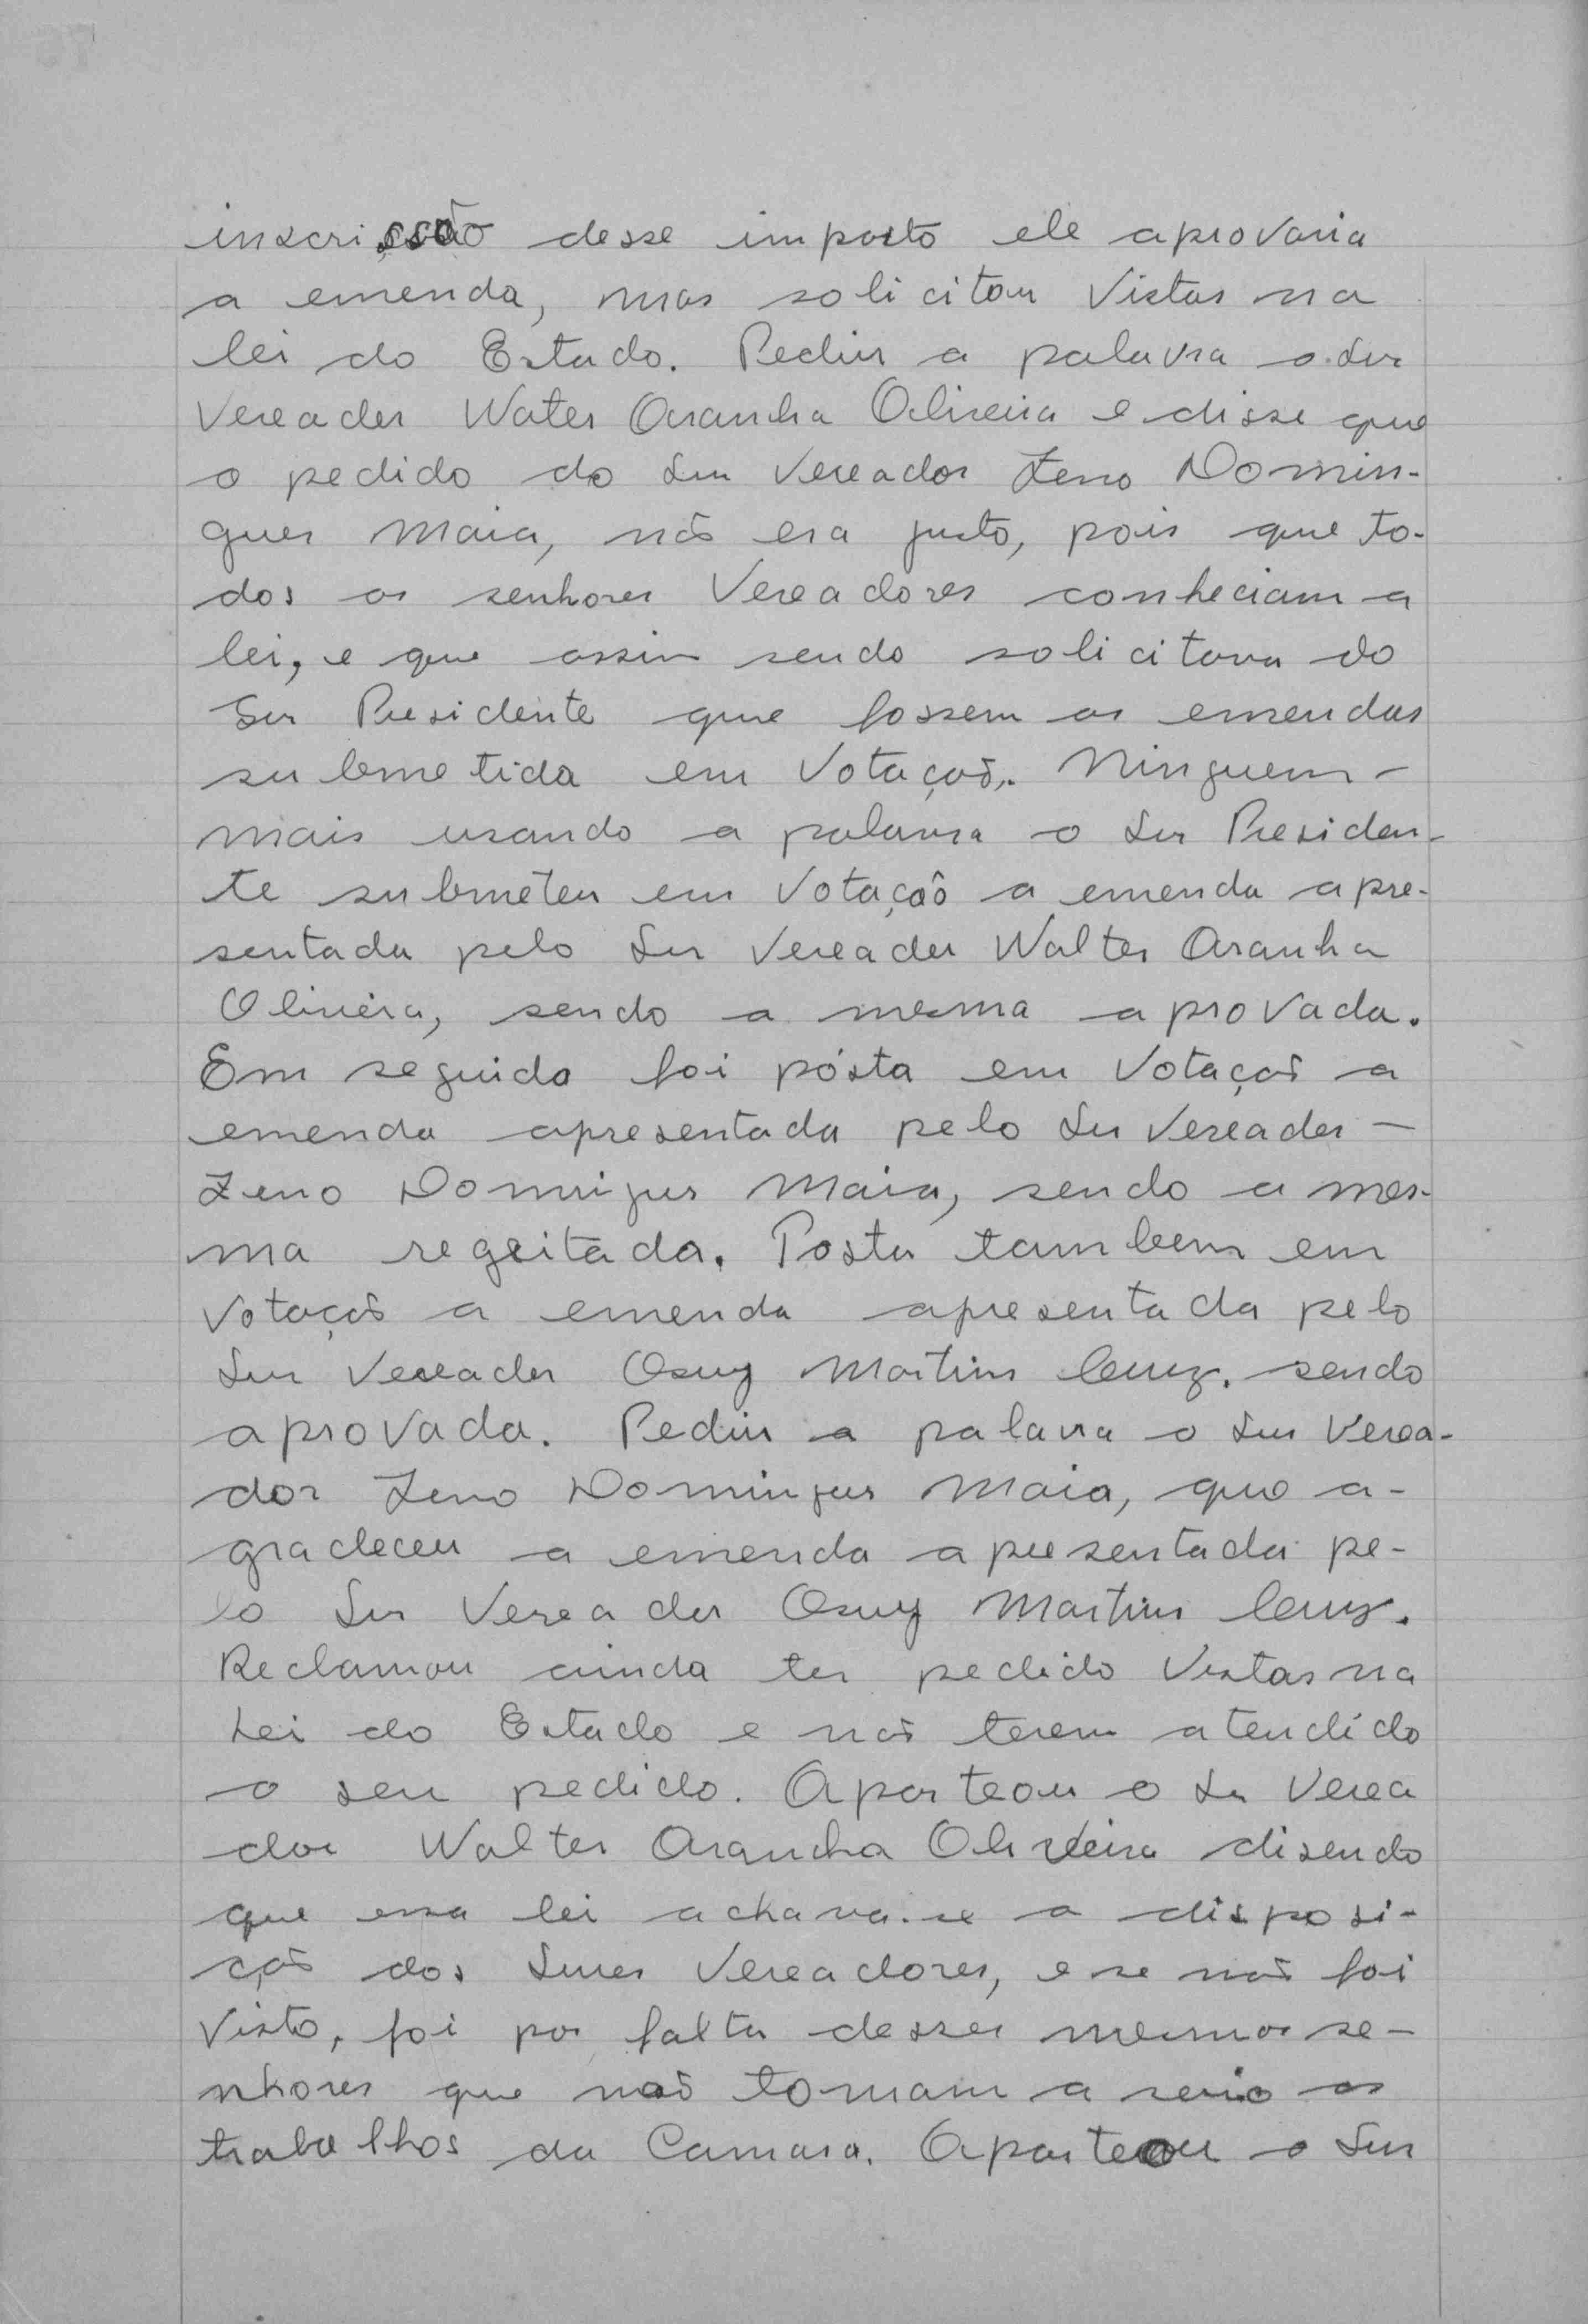 inscrissão desse imposto ele aprovaria
a emenda, mas solicitou Vistas na
lei do Estado. Pediu a palavra o Snr
Vereador Water Aranha Oliveira e disse que
o pedido do Snr Vereador Zeno Domin-
gues Maia, não era justo, pois que to-
dos os senhores Vereadores conheciam a
lei, e que assim sendo solicitava do
Snr Presidente que fossem as emendas
submetida em Votação. Ninguem -
mais usando a palavra o Snr Presiden-
te submeteu em Votação a emenda apre-
sentada pelo Snr Vereador Walter Aranha
Oliveira, sendo a mesma aprovada.
Em seguida foi pósta em Votação a
emenda apresentada pelo Snr Vereador -
Zeno Domingues Maia, sendo a mes-
ma regeitada. Posta tambem em
Votação a emenda apresentada pelo
Snr Vereador Osuy Martins Cruz. sendo
aprovada. Pediu a palavra o Snr Verea-
dor Zeno Domingues Maia, que a-
gradeceu a emenda apresentada pe-
lo Snr Vereador Osuy Martins Cruz.
Reclamou ainda ter pedido Vistas na
Lei do Estado e não terem atendido
o seu pedido. Aparteou o Sr Verea
dor Walter Aranha Oliveira disendo
que essa lei achava-se a disposi-
ção dos Snres Vereadores, e se não foi
Visto, foi por falta desses mesmos se-
nhores que não tomam a serio os
trabalhos da Camara. Aparteou o Snr